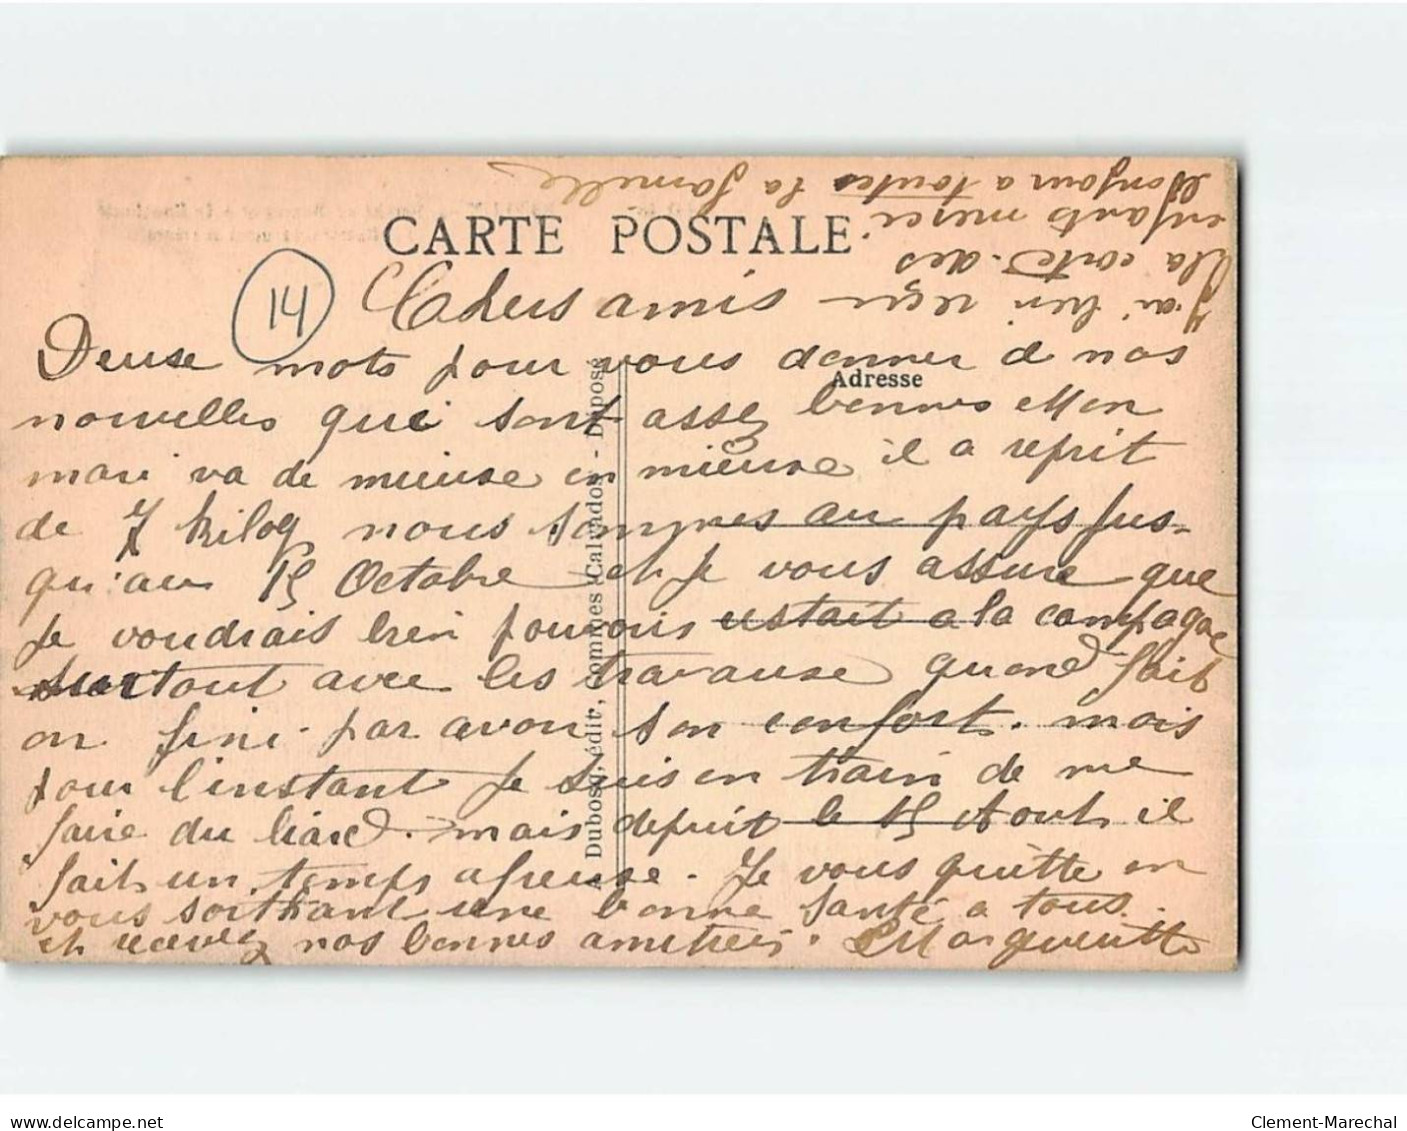 CARTE POSTALE
14
Chers amis
Deuse mots pour vous donner de nos
nouvelles qui sont assez bonnes Mon
mari va de mieuse en mieuse il a reprit
de 7 kilog nous sommes au pays jus-
qu'au 15 Octobre et je vous assure que
je voudrais bien pouvoir restait a la compagne
surtout avec les travause quand sait
on fini par avoir son confort. mais
pour l'instant je suis en train de me
faire du liard. mais depuit le 15 Aout il
fait un temps afreuse. Je vous quitte en
vous soithant une bonne santé a tous.
et recevez nos bonnes amitiés. Margueritte
J'ai bien reçu
la carte des
enfants merci
Bonjour a toutes la famille
Adresse
Dubosq, édit, Commes Calvados - Déposé
delcampe.net
Clement-Marechal